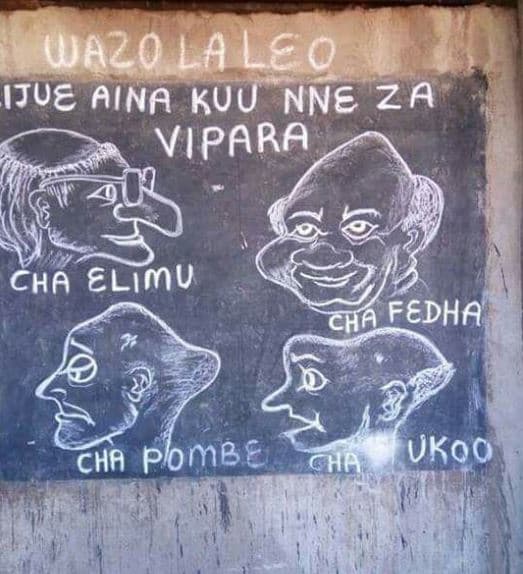 WAZO LA LEO
IJUE AINA KUU NNE ZA
VIPARA
CHA ELIMU
CHA FEDHA
CHA POMBE
CHA UKOO